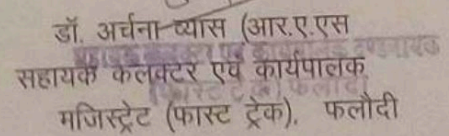 डॉ. अर्चना व्यास (आर.ए.एस
सहायक कलक्टर एवं कार्यपालक
मजिस्ट्रेट (फास्ट ट्रेक), फलौदी